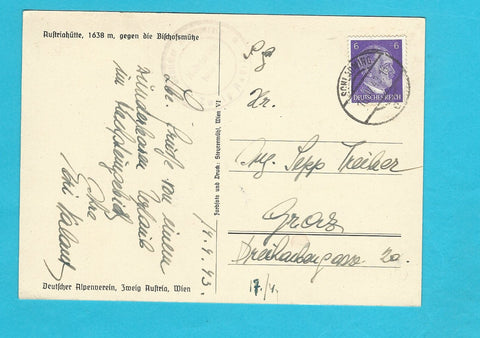 Austriahütte, 1638 m, gegen die Bischofsmütze
Lb. Grüße von einem
wunderbaren Urlaub
im Dachsteingebiet
Ihre
14.4.43.
Deutscher Alpenverein, Zweig Austria, Wien
Farbfoto und Druck: Steyrermühl, Wien VI
6 6
DEUTSCHES REICH
SCHLADMING
Pg
Hr.
Ing. Sepp Treiber
Graz
Dreihackengasse 2a.
17./4.